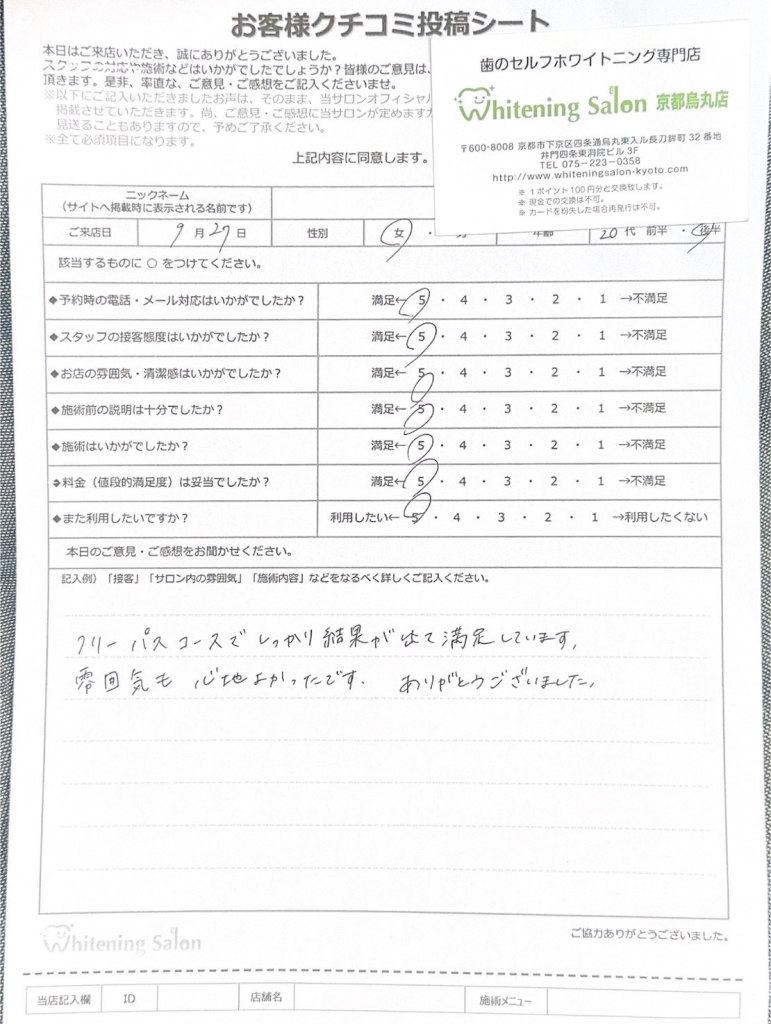 お客様クチコミ投稿シート
本日はご来店いただき、誠にありがとうございました。
スタッフの対応や施術などはいかがでしたでしょうか?皆様のご意見は、
頂きます。是非、率直な、ご意見・ご感想をご記入くださいませ。
※以下にご記入いただきましたお声は、そのまま、当サロンオフィシャル
掲載させていただきます。尚、ご意見・ご感想に当サロンが定めますガ
見送ることもありますので、予めご了承ください。
※全て必須項目になります。
上記内容に同意します。
歯のセルフホワイトニング専門店
Whitening Salon 京都烏丸店
〒600-8008 京都市下京区四条通烏丸東入ル長刀鉾町 32 番地
井門四条東洞院ビル 3F
TEL 075-223-0358
http://www.whiteningsalon-kyoto.com
※ 1ポイント100円分と交換致します。
※ 現金での交換は不可。
※ カードを紛失した場合再発行は不可。
ニックネーム
(サイトへ掲載時に表示される名前です)
ご来店日 9 月 27 日 性別 女 ・ 男 年齢 20 代 前半 ・ 後半
該当するものに ○ をつけてください。
◆予約時の電話・メール対応はいかがでしたか? 満足← 5 ・ 4 ・ 3 ・ 2 ・ 1 →不満足
◆スタッフの接客態度はいかがでしたか? 満足← 5 ・ 4 ・ 3 ・ 2 ・ 1 →不満足
◆お店の雰囲気・清潔感はいかがでしたか? 満足← 5 ・ 4 ・ 3 ・ 2 ・ 1 →不満足
◆施術前の説明は十分でしたか? 満足← 5 ・ 4 ・ 3 ・ 2 ・ 1 →不満足
◆施術はいかがでしたか? 満足← 5 ・ 4 ・ 3 ・ 2 ・ 1 →不満足
◆料金(値段的満足度)は妥当でしたか? 満足← 5 ・ 4 ・ 3 ・ 2 ・ 1 →不満足
◆また利用したいですか? 利用したい← 5 ・ 4 ・ 3 ・ 2 ・ 1 →利用したくない
本日のご意見・ご感想をお聞かせください。
記入例)「接客」「サロン内の雰囲気」「施術内容」などをなるべく詳しくご記入ください。
フリーパスコースでしっかり結果が出て満足しています。
雰囲気も 心地よかったです。 ありがとうございました。
Whitening Salon
ご協力ありがとうございました。
当店記入欄 ID 店舗名 施術メニュー